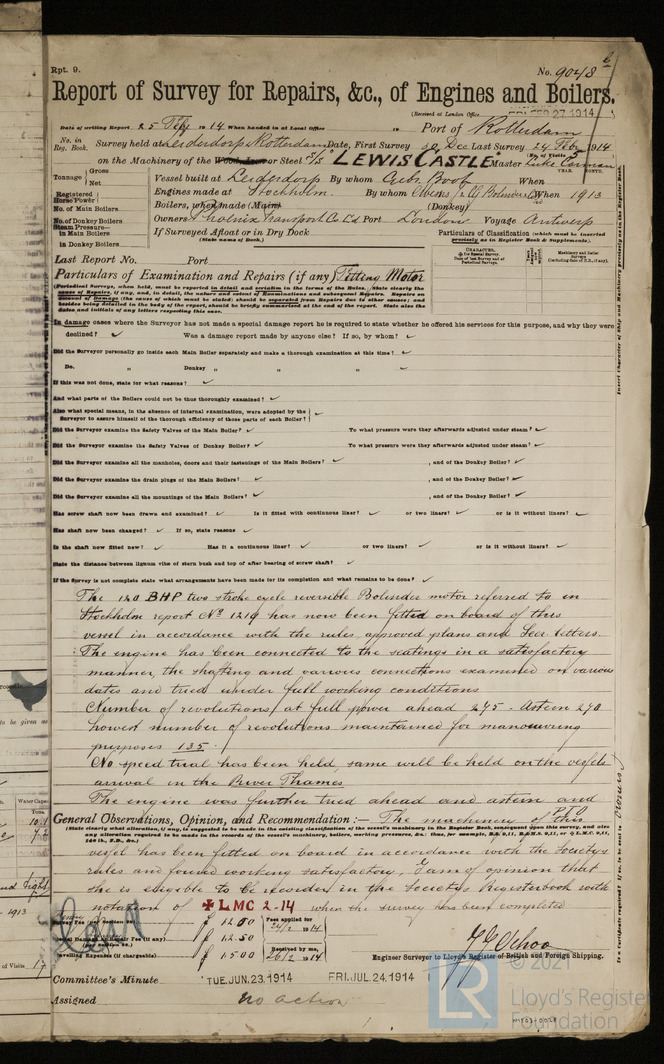 Rpt. 9.
No. 9048
Report of Survey for Repairs, &c., of Engines and Boilers.
(Received at London Office FEB 27 1914
Date of writing Report 25 Feb 1914 When handed in at Local Office 19 Port of Rotterdam
No. in Reg. Book. Survey held at Leiderdorp & Rotterdam Date, First Survey 30 Dec Last Survey 24 Feb 1914
(No. of Visits
on the Machinery of the Wood, Iron or Steel S/S LEWIS CASTLE Master Luke
Tonnage Gross Net
Vessel built at Leiderdorp By whom Gebr. Boot When
Registered Horse Power
Engines made at Stockholm By whom When 1913
No. of Main Boilers
Boilers, when made (Main) (Donkey)
No. of Donkey Boilers
Owners Phoenix Transport Co Ld Port London Voyage Antwerp
Steam Pressure in Main Boilers
If Surveyed Afloat or in Dry Dock
(State name of Dock.)
in Donkey Boilers
Particulars of Classification (which must be inserted
precisely as in Register Book & Supplements).
Last Report No. Port
Particulars of Examination and Repairs (if any) Fitting Motor
In damage cases where the Surveyor has not made a special damage report he is required to state whether he offered his services for this purpose, and why they were
declined? ✓ Was a damage report made by anyone else? If so, by whom? ✓
Did the Surveyor personally go inside each Main Boiler separately and make a thorough examination at this time? ✓
Do. „ Donkey „ „ „ ✓
If this was not done, state for what reasons? ✓
And what parts of the Boilers could not be thus thoroughly examined? ✓
Also what special means, in the absence of internal examination, were adopted by the
Surveyor to assure himself of the thorough efficiency of those parts of each Boiler? ✓
Did the Surveyor examine the Safety Valves of the Main Boiler? ✓ To what pressure were they afterwards adjusted under steam? ✓
Did the Surveyor examine the Safety Valves of Donkey Boiler? ✓ To what pressure were they afterwards adjusted under steam? ✓
Did the Surveyor examine all the manholes, doors and their fastenings of the Main Boilers? ✓ , and of the Donkey Boiler? ✓
Did the Surveyor examine the drain plugs of the Main Boilers? ✓ , and of the Donkey Boiler? ✓
Did the Surveyor examine all the mountings of the Main Boilers? ✓ , and of the Donkey Boiler? ✓
Has screw shaft now been drawn and examined? ✓ Is it fitted with continuous liner? ✓ or two liners? ✓ or is it without liners? ✓
Has shaft now been changed? ✓ If so, state reasons ✓
Is the shaft now fitted new? ✓ Has it a continuous liner? ✓ or two liners? ✓ or is it without liners? ✓
State the distance between lignum vitæ of stern bush and top of after bearing of screw shaft? ✓
If the Survey is not complete state what arrangements have been made for its completion and what remains to be done? ✓
The 120 BHP two stroke cycle reversible Bolinder motor referred to in
Stockholm report No 1219 has now been fitted on board of this
vessel in accordance with the rules, approved plans and Secr. letters.
The engine has been connected to the seatings in a satisfactory
manner, the shafting and various connections examined on various
dates and tried under full working conditions
Number of revolutions at full power ahead 275 - Astern 270
lowest number of revolutions maintained for manouvering
purposes 135.
No speed trial has been held, same will be held on the vessels
arrival in the River Thames
The engine was further tried ahead and astern and
P.T.O
General Observations, Opinion, and Recommendation:— The machinery of this
vessel has been fitted on board in accordance with the Society's
rules and found working satisfactory, I am of opinion that
she is eligible to be recorded in the Society's Registerbook with
notation of + LMC 2-14 when the survey has been completed
Survey Fee £ 12.00 Fees applied for 24/2 1914
Special Damage or Repair Fee (if any) £ 12.50
Travelling Expenses (if chargeable) £ 15.00 Received by me, 26/2 1914
Engineer Surveyor to Lloyd's Register of British and Foreign Shipping.
Committee's Minute TUE. JUN. 23. 1914 FRI. JUL. 24. 1914
Assigned no action
© 2021
LR Lloyd's Register
Foundation